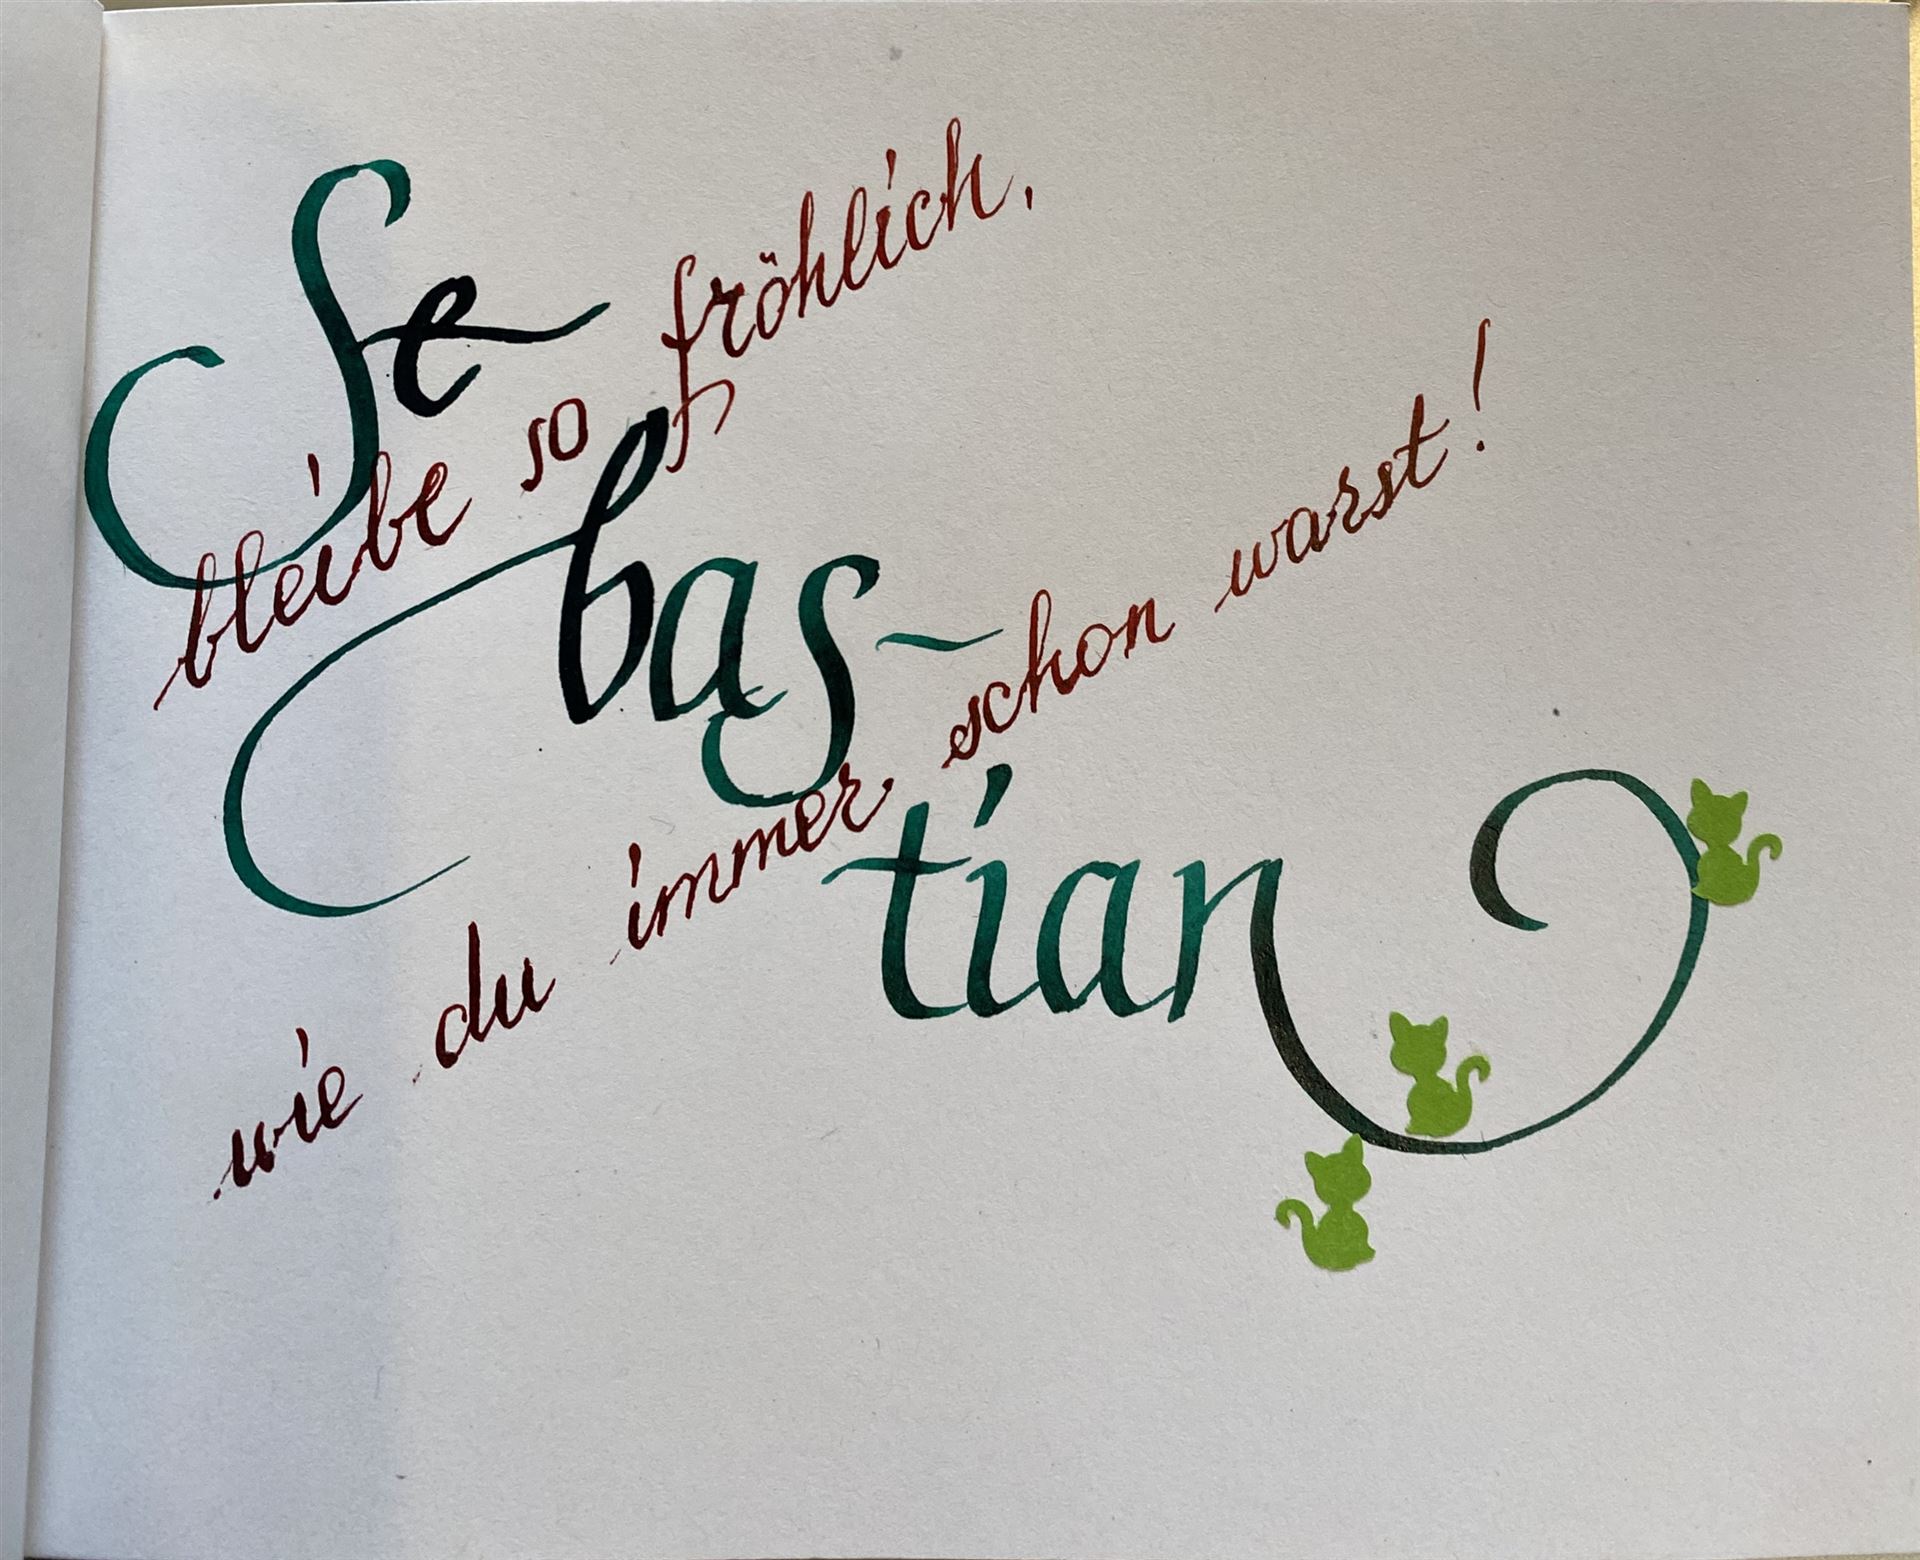 Se
bleibe so fröhlich,
bas-
wie du immer schon warst!
tian